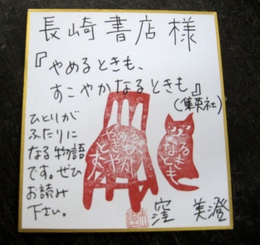 長崎書店様
『やめるときも、
すこやかなるときも』
(集英社)
ひとりが
ふたりに
なる物語
です。ぜひ
お読み
下さい。
窪 美澄